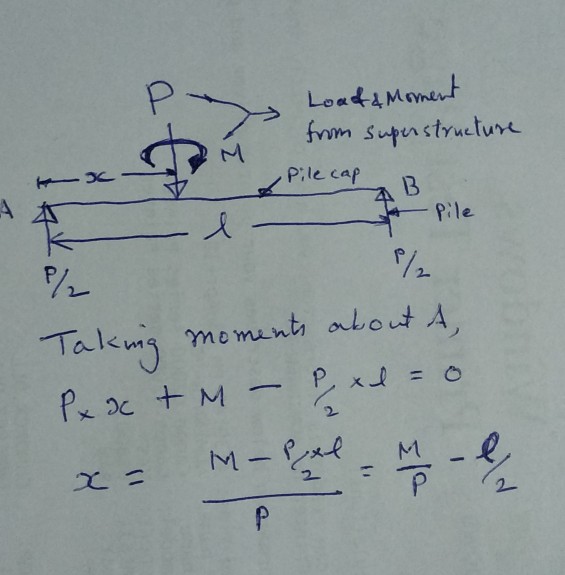 P
Load & Moment
from superstructure
M
x
Pile cap
A
B
Pile
l
P/2
P/2
Taking moments about A,
P x x + M - P/2 x l = 0
x = M - P/2 x l / P = M/P - l/2